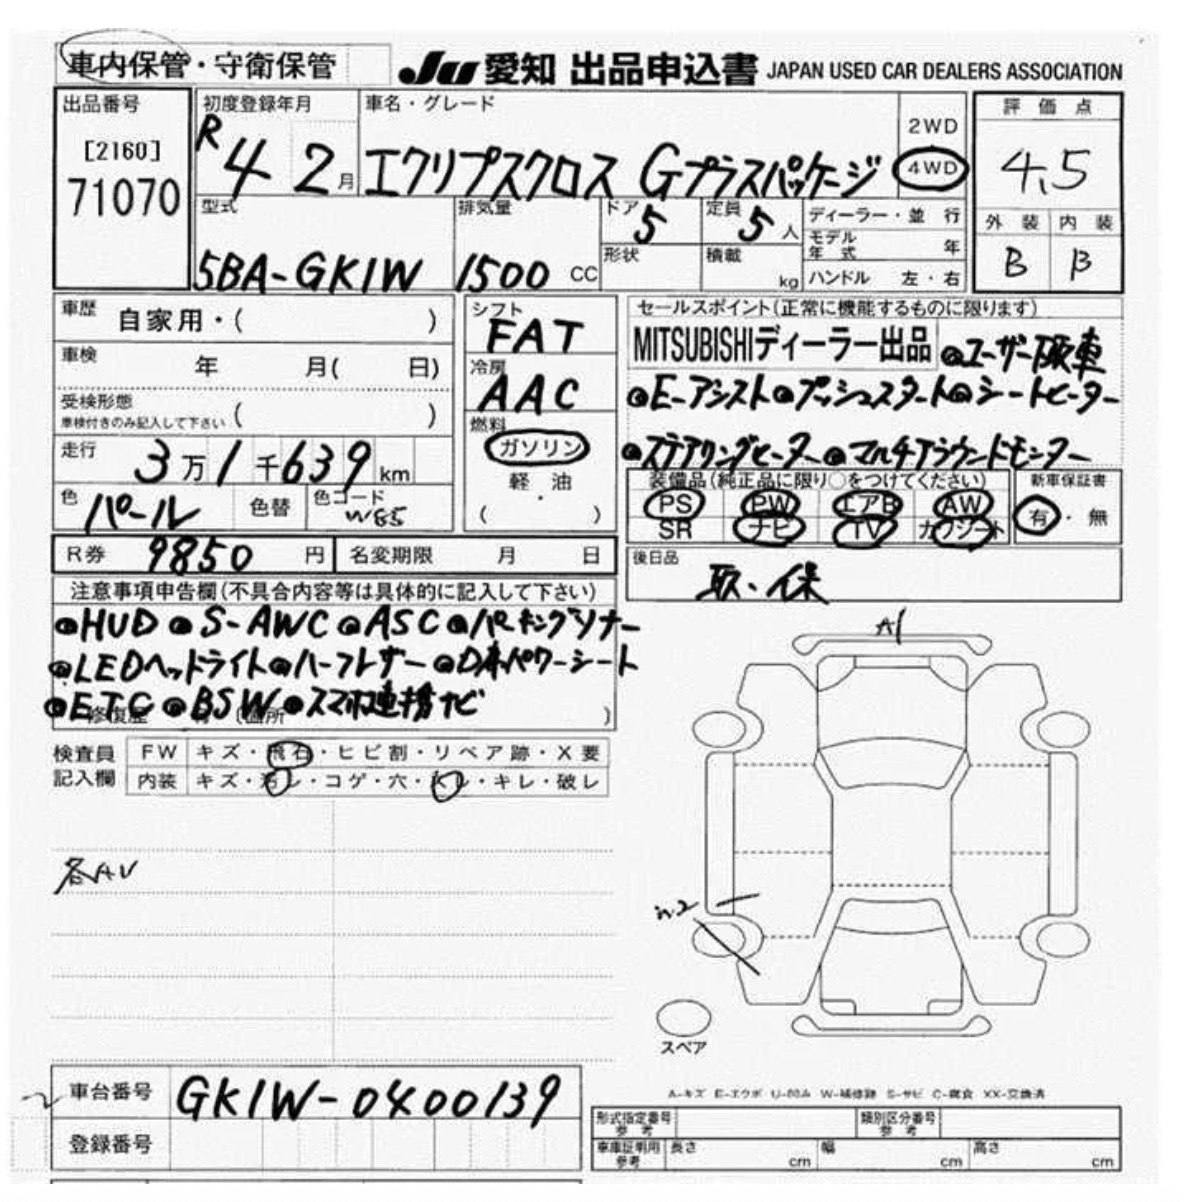 車内保管・守衛保管
JU 愛知 出品申込書 JAPAN USED CAR DEALERS ASSOCIATION
出品番号
[2160]
71070
初度登録年月
R4 2月
車名・グレード
エクリプスクロス Gプラスパッケージ
2WD
4WD
評価点
4.5
外装 内装
B B
型式
5BA-GK1W
排気量
1500 CC
ドア 5
形状
定員 5人
積載 kg
ディーラー・並行
モデル年式 年
ハンドル 左・右
車歴 自家用・( )
車検 年 月( 日)
受検形態
車検付きのみ記入して下さい ( )
走行 3万1千639km
色 パール 色替 色コード W85
シフト
FAT
冷房
AAC
燃料
ガソリン
軽・油
( )
セールスポイント(正常に機能するものに限ります)
MITSUBISHIディーラー出品 ●ユーザー下取車
●E-アシスト●プッシュスタート●シートヒーター
●ステアリングヒーター●マルチアラウンドモニター
装備品(純正品に限り○をつけてください)
PS PW エアB AW
SR ナビ TV カワシート
新車保証書
有・無
R券 9850円 名変期限 月 日
後日品
取・保
注意事項申告欄(不具合内容等は具体的に記入して下さい)
●HUD ●S-AWC ●ASC ●パーキングソナー
●LEDヘッドライト●ハーフレザー ●D席パワーシート
●ETC ●BSW●スマホ連携ナビ
修復歴 (箇所 )
検査員記入欄
FW キズ・飛石・ヒビ割・リペア跡・X要
内装 キズ・汚レ・コゲ・穴・スレ・キレ・破レ
各AU
A1
スペア
A-キズ E-エクボ U-凹み W-補修跡 S-サビ C-腐食 XX-交換済
車台番号 GK1W-0400139
登録番号
形式指定番号参考 類別区分番号参考
車庫証明用参考 長さ cm 幅 cm 高さ cm